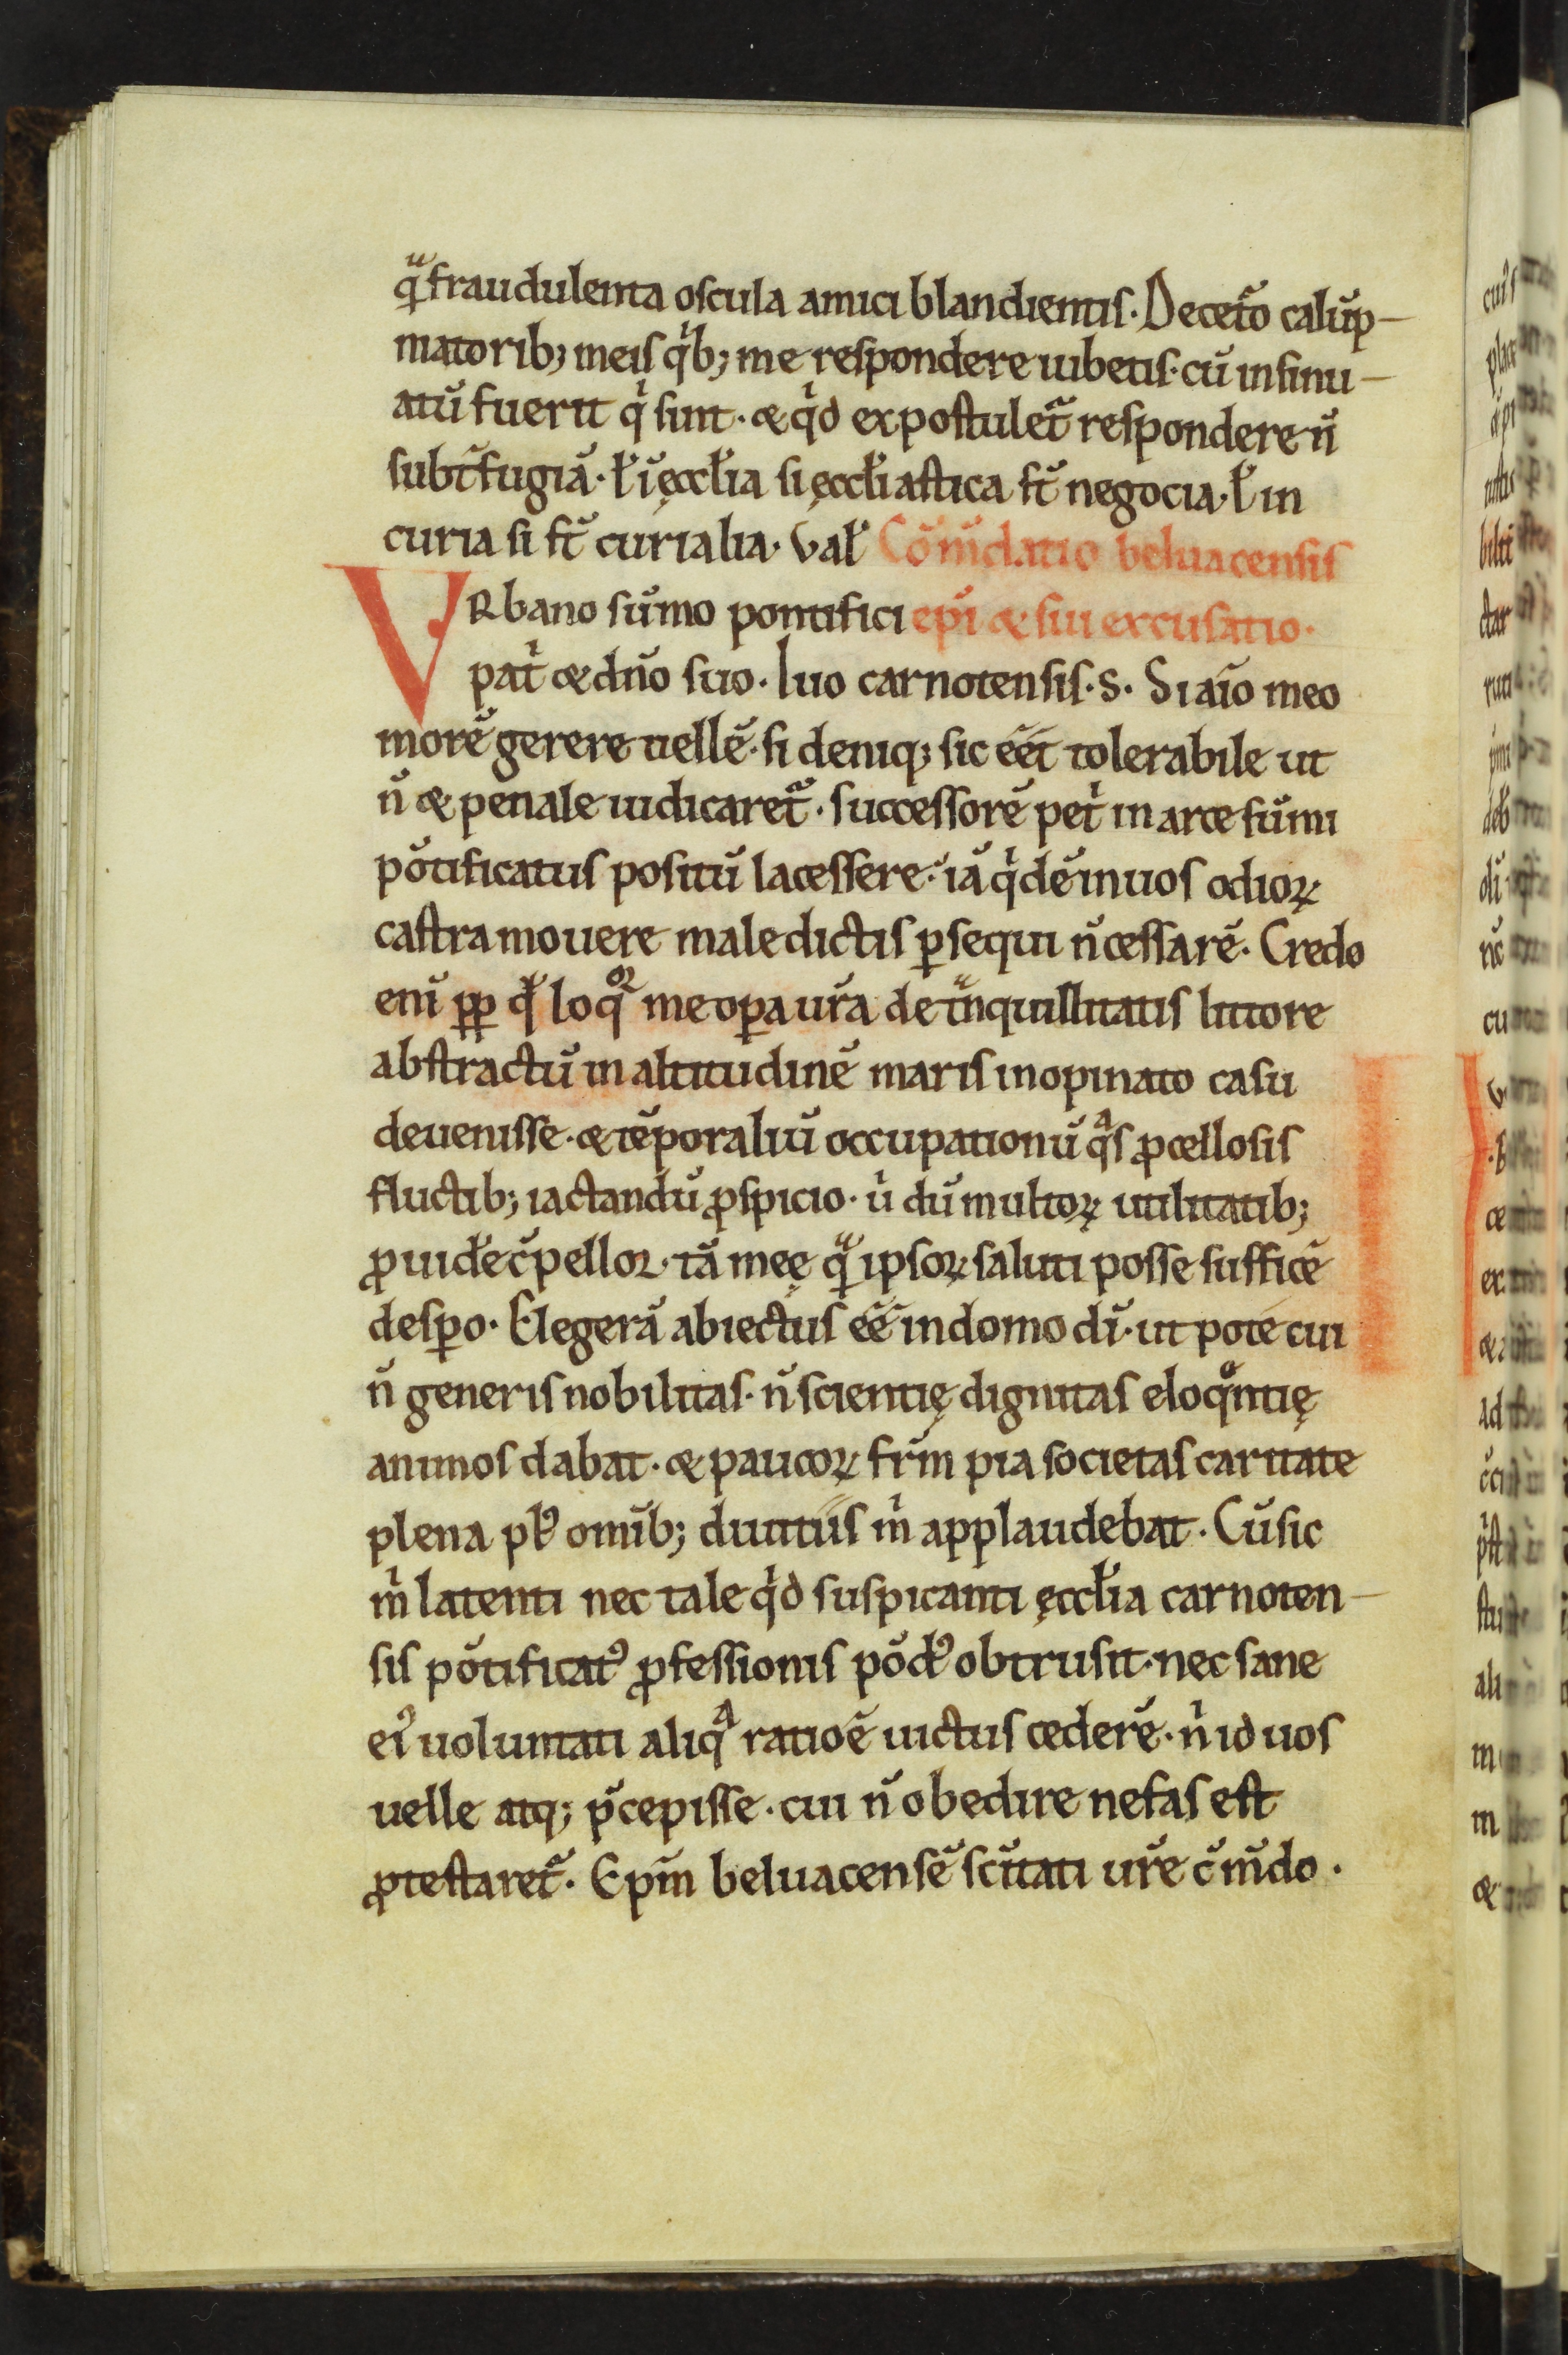 qᷓ fraudulenta oscula amici blandientis. De cet̃o calūp-
niatorib; meis qͥb; me respondere iubetis. cū insinu-
atū fuerit qͥ sint. & qͥd expostulet᷑ respondere n̄
subt̃fugiā. ł ī ęccłia si ęccłiastica st̄ negocia. ł in
curia si st̄ curialia. Vał Cōm̄datio beluacensis
VRbano sūmo pontifici ep̄i & sui excusatio.
patͥ & dn̄o suo. Iuo carnotensis. S. Si aīo meo
morē gerere uellē. si deniq; sic eēt tolerabile ut
n̄ & penale iudicaret᷑. successorē petͥ in arce sūmi
pōtificatus positū lacessere. iā qͥdē in uos odioꝝ
castra mouere maledictis ꝑsequi n̄ cessarē. Credo
enī ꝓp̄ qđ loqͦr me oꝑa ur̄a de tᷓnquillitatis littore
abstractū in altitudinē maris inopinato casu
deuenisse. & tēporaliū occupationū qᷓs ꝓcellosis
fluctib; iactandū ꝓspicio. uͥ dū multoꝝ utilitatib;
ꝓuidē c̄pellor. tā meę qᷓ ipsoꝝ saluti posse sufficē
desꝑo. Elegerā abiectus eē in domo dī. ut pote cui
n̄ generis nobilitas. n̄ scientię dignitas eloqͣntię
animos dabat. & paucoꝝ fr̄m pia societas caritate
plena pł omīb; diuitiis mͥ applaudebat. Cū sic
mͥ latenti nec tale qͥd suspicanti ęccłia carnoten-
sis pōtificatꝰ ꝓfessionis pōdꝰ obtrusit. nec sane
eiꝰ uoluntati aliqᷓ ratiōe uictus cederē. nͥ id uos
uelle atq; p̄cepisse. cui n̄ obedire nefas est
ꝓtestaret᷑. Ep̄m beluacensē sc̄itati ur̄e c̄m̄do.